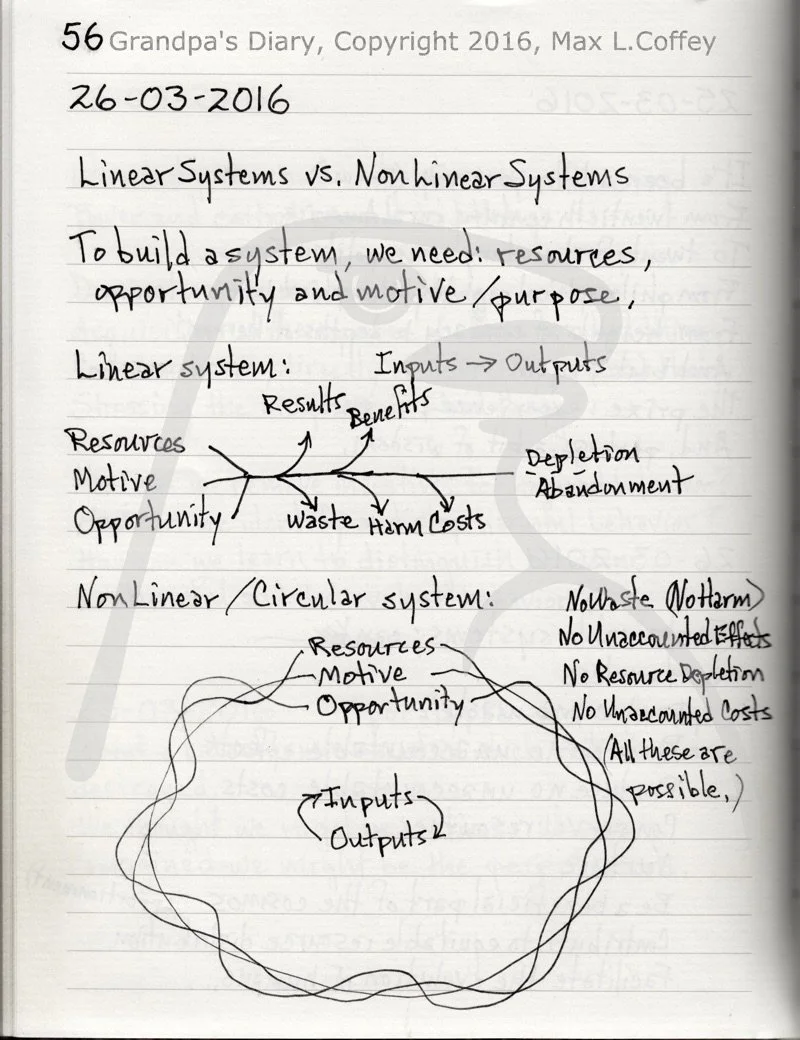 56 Grandpa's Diary, Copyright 2016, Max L.Coffey
26-03-2016
Linear Systems vs. NonLinear Systems
To build a system, we need: resources,
opportunity and motive/purpose,
Linear system: Inputs → Outputs
Results Benefits
Resources
Motive
Opportunity
Depletion
Abandonment
Waste Harm Costs
NonLinear/Circular system:
No Waste (No Harm)
No Unaccounted Effects
No Resource Depletion
No Unaccounted Costs
(All these are
possible,)
Resources
Motive
Opportunity
Inputs
Outputs